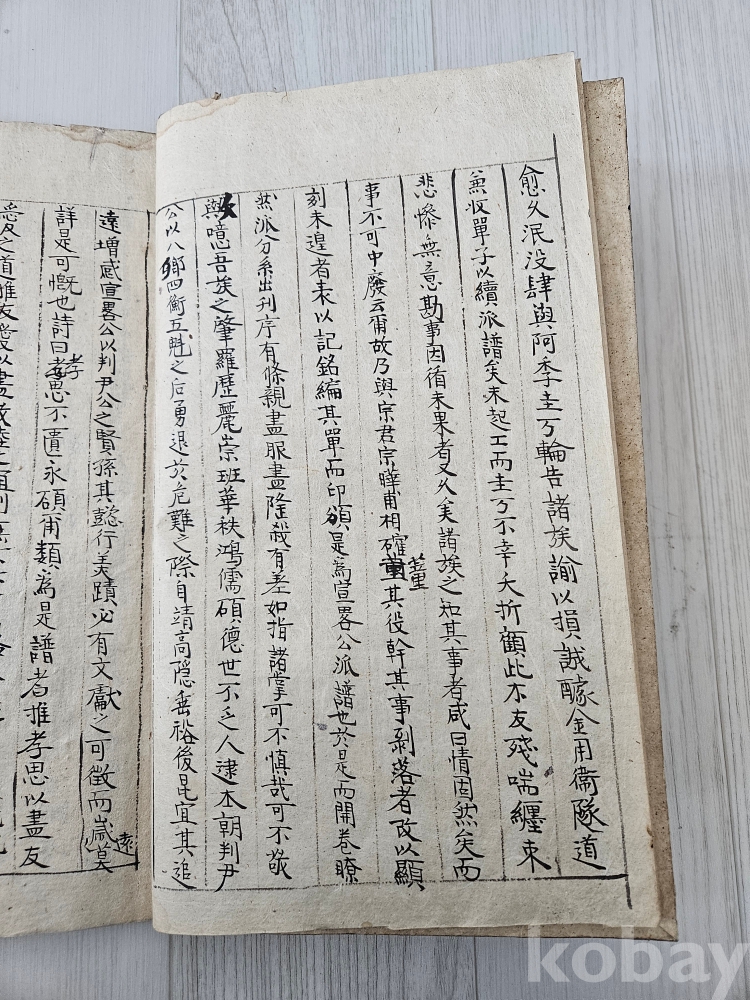 愈久泯没肆與阿季圭丂輪告諸族諭以損誠醵金用衛隧道
兼收單子以續派譜矣未起工而圭丂不幸夭折顧此不友殘喘纏束
悲慘無意勘事因循未果者又久矣諸族之知其事者咸曰情固然矣而
事不可中廢云爾故乃與宗君宗曄甫相確董其役幹其事剥落者改以顯
刻未遑者表以記銘編其單而印頒是為宣畧公派譜也於是而開卷瞭
然派分系出刋序有條親盡服盡隆殺有差如指諸掌可不慎哉可不敬
與噫吾族之肇羅歷麗崇班華秩鴻儒碩德世不乏人逮本朝判尹
公以八鄉四衡五魁之后勇退於危難之際自靖高隱垂裕後昆宜其追
遠增感宣畧公以判尹公之賢孫其懿行美蹟必有文獻之可徵而歲莫遠
詳是可慨也詩曰孝思不匱永碩甫類為是譜者推孝思以盡友
kobay